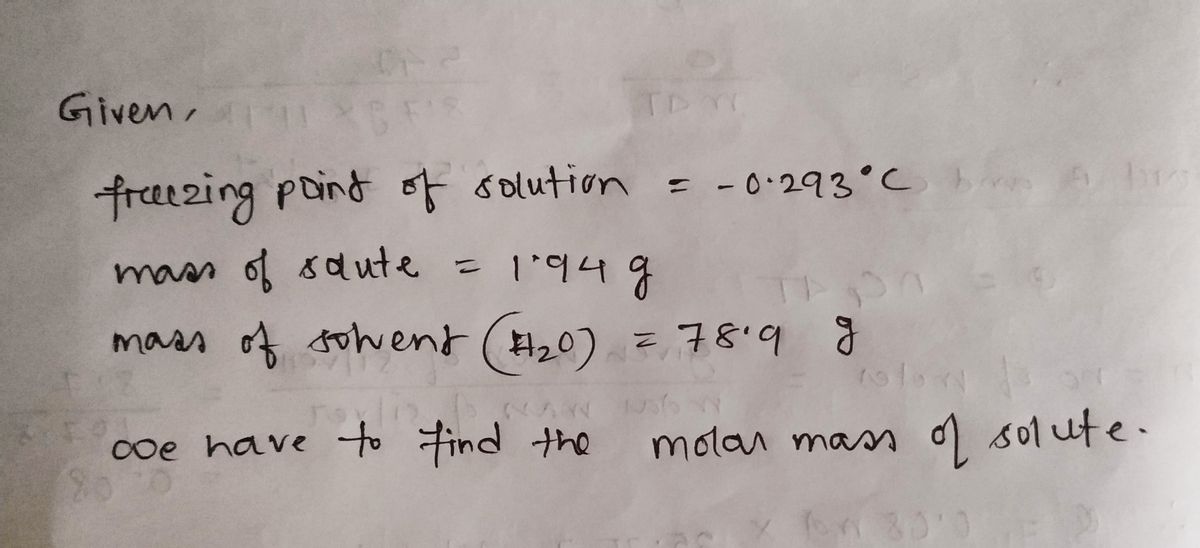 Given,
freezing point of solution = -0.293°C
mass of solute = 1.94 g
mass of solvent (H₂O) = 78.9 g
we have to find the molar mass of solute.